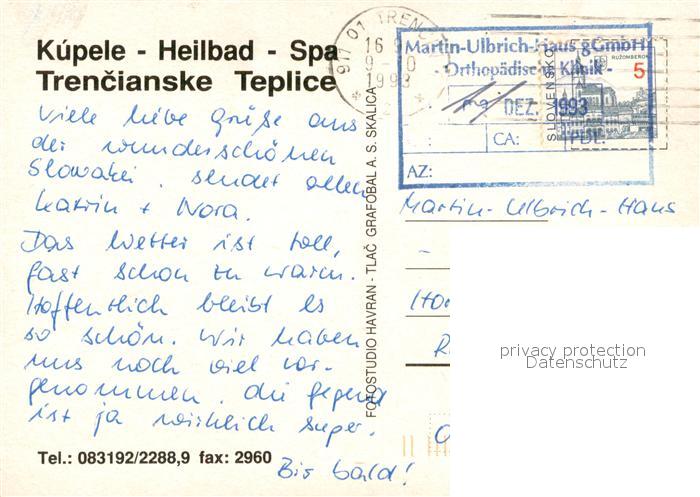 Kúpele - Heilbad - Spa
Trenčianske Teplice
Viele liebe Grüße aus
der wunderschönen
Slowakei. sendet allen
Katrin + Nora.
Das Wetter ist toll,
fast schon zu warm.
Hoffentlich bleibt es
so schön. Wir haben
uns noch viel vor-
genommen. die gegend
ist ja wirklich super.
Bis bald!
Tel.: 083192/2288,9 fax: 2960
FOTOSTUDIO HAVRAN - TLAČ GRAFOBAL A. S. SKALICA
911 01 TREN
16 9
1993
Martin-Ulbrich-Haus gGmbH
- Orthopädische Klinik -
DEZ. 1993
CA:
PDL:
AZ:
SLOVENSKO
RUŽOMBEROK
5
Martin-Ulbrich-Haus
privacy protection
Datenschutz